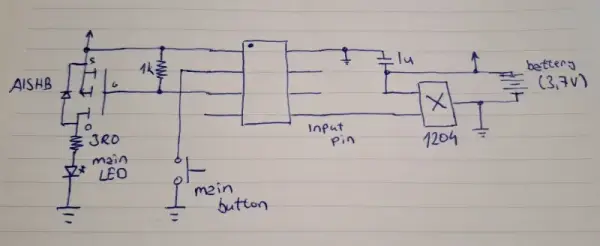 A1SHB
S
G
D
1k
3R0
main
LED
main
button
Input
pin
1u
1204
battery
(3,7V)